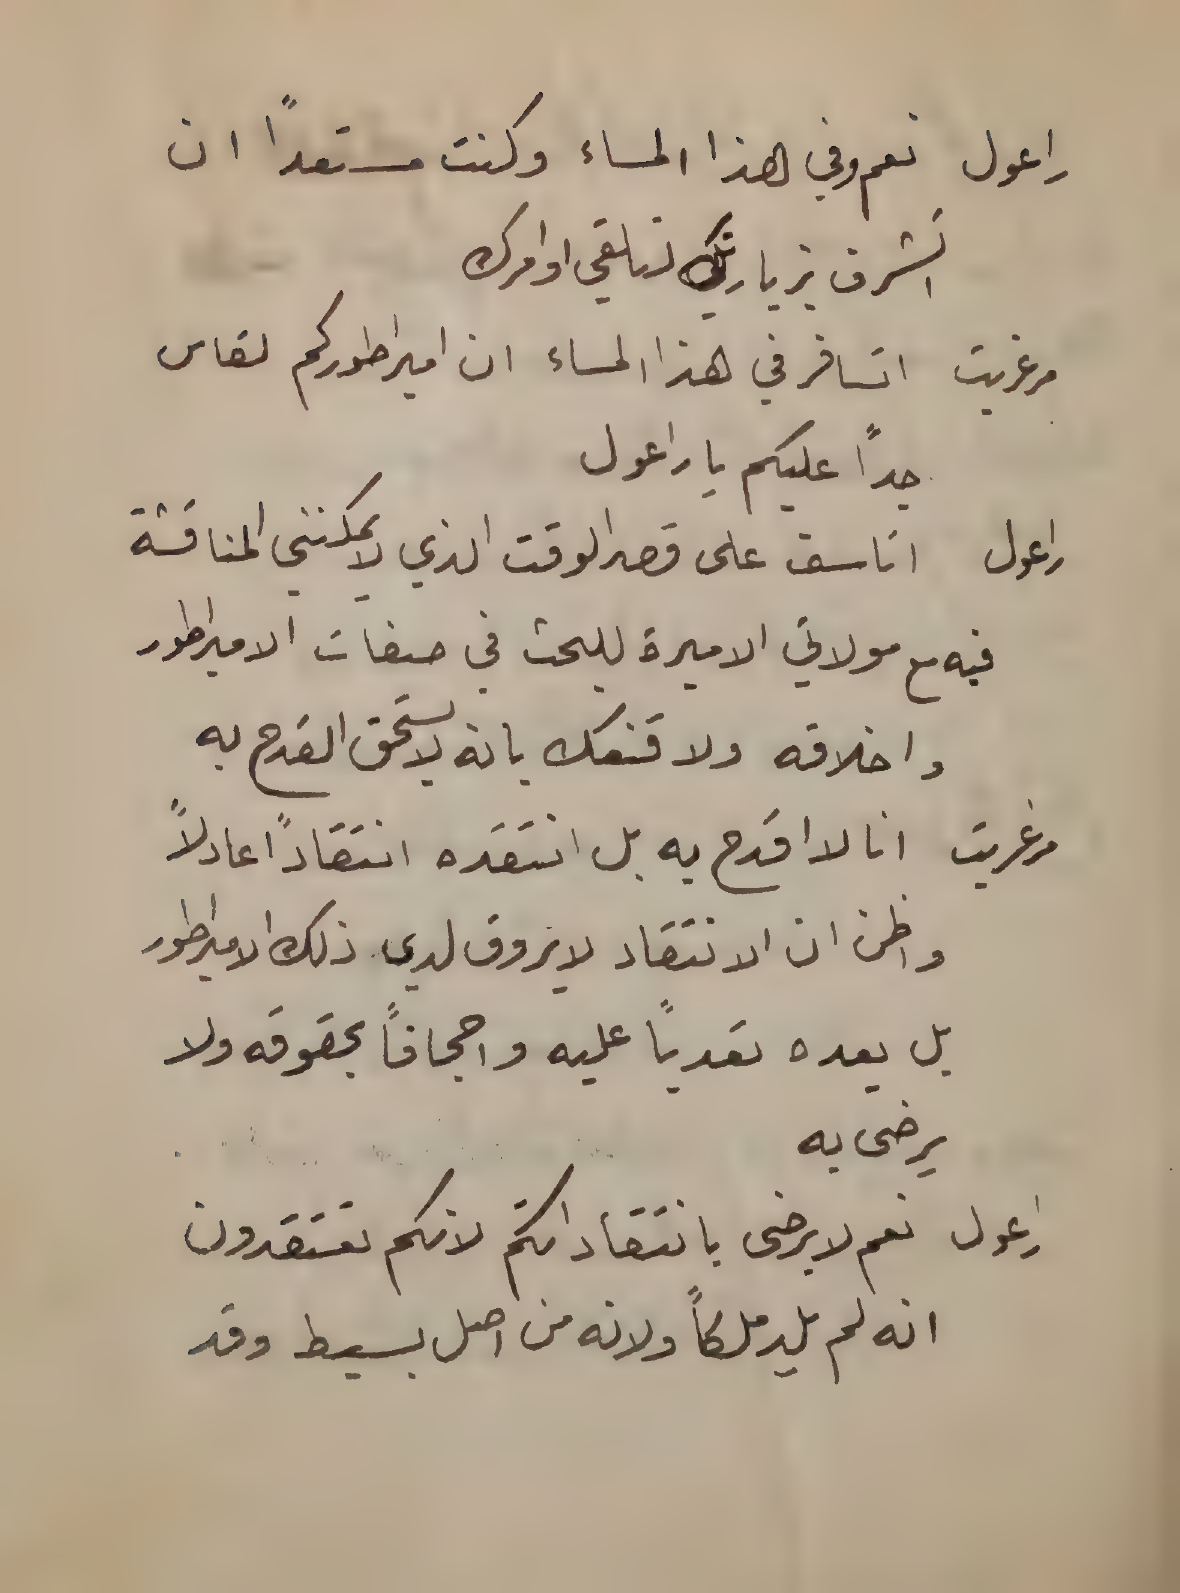 راعول نعم وفي هذا المساء وكنت مستعداً ان
اتشرف بزيارتك لتلقي اوامرك
مرغريت اتسافر في هذا المساء ان اميراطوركم لقاس
جداً عليكم يا راعول
راعول اتاسف على قصر الوقت الذي لا يمكنني المناقشة
فيه مع مولاتي الاميرة للبحث في صفات الاميراطور
واخلاقه ولاقنعك بانه لا يستحق القدح به
مرغريت انا لا اقدح به بل انتقده انتقاداً عادلاً
واظن ان الانتقاد لا يروق لدى ذلك الاميراطور
بل يعده تعدياً عليه واجحافاً بحقوقه ولا
يرضى به
راعول نعم لا يرضى بانتقاداتكم لانكم تعتقدون
انه لم يلد ملكاً ولانه من اصل بسيط وقد